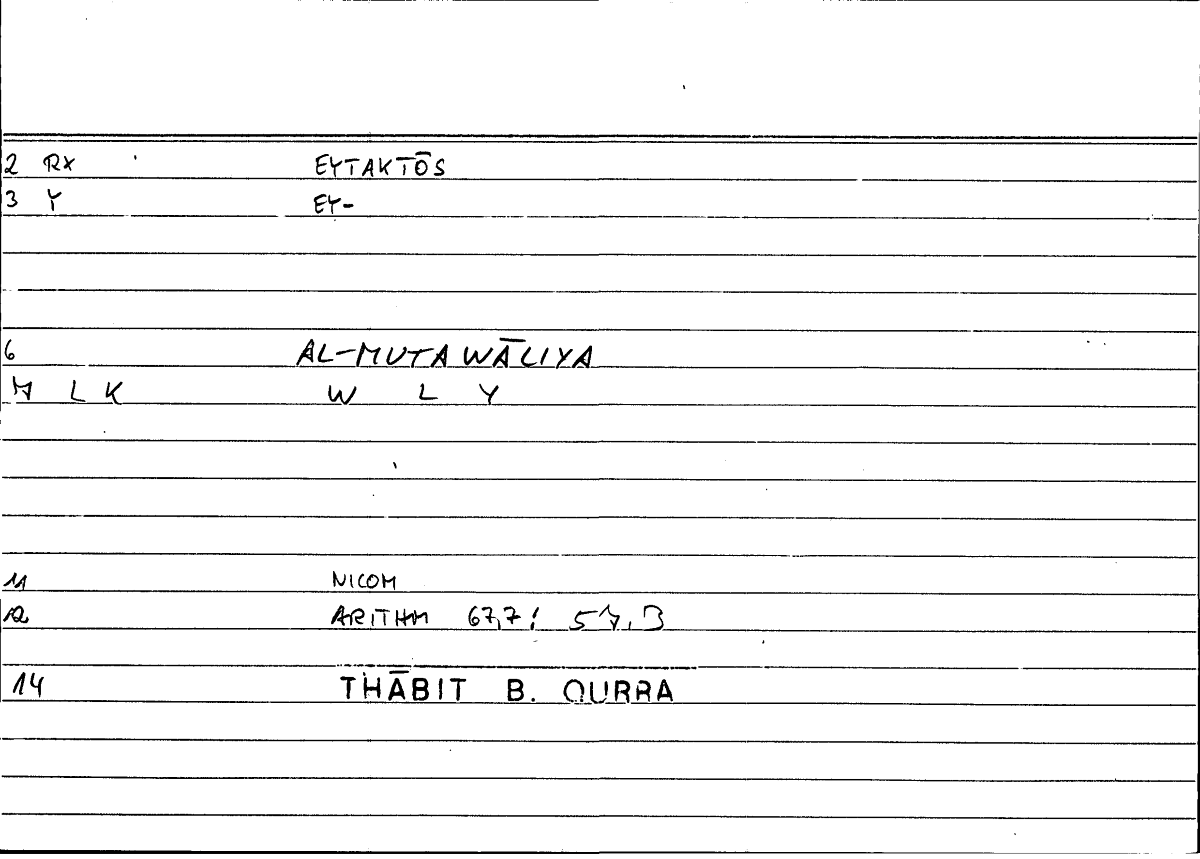 2 RX EYTAKTŌS
3 Y EY-
6 AL-MUTAWĀLIYA
LK W L Y
11 NICOM
12 ARITHM 67,7:
14 THĀBIT B. QURRA